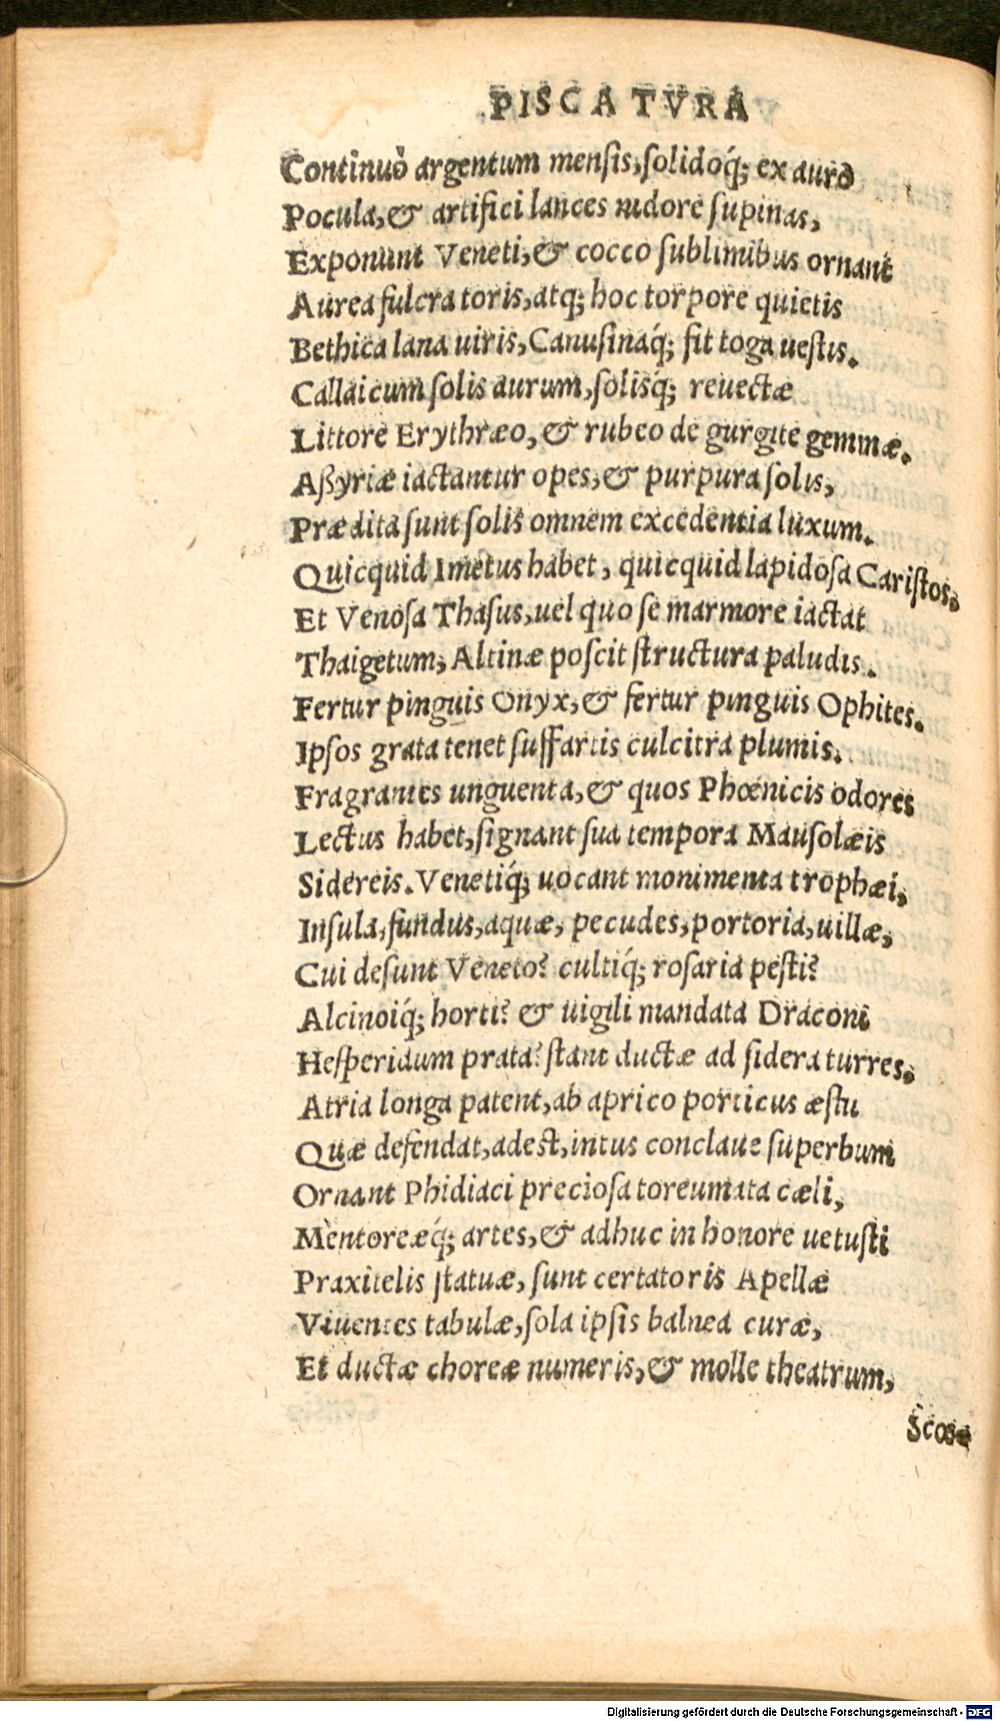 PISCATVRA
Continuò argentum mensis, solidoq́; ex auro
Pocula, & artifici lances nidore supinas,
Exponunt Veneti, & cocco sublimibus ornant
Aurea fulcra toris, atq; hoc torpore quietis
Bethica lana uiris, Canusinaq́; fit toga uestis.
Callaicum solis aurum, solisq́; reuectæ
Littore Erythræo, & rubeo de gurgite gemmæ.
Aßyriæ iactantur opes, & purpura solis,
Prædita sunt solis omnem excedentia luxum.
Quicquid Imetus habet, quicquid lapidosa Caristos,
Et Venosa Thasus, uel quo se marmore iactat
Thaigetum, Altinæ poscit structura paludis.
Fertur pinguis Onyx, & fertur pinguis Ophites.
Ipsos grata tenet suffartis culcitra plumis.
Fragrantes unguenta, & quos Phœnicis odores
Lectus habet, signant sua tempora Mausolæis
Sidereis. Venetiq́; uocant monimenta trophæi,
Insula, fundus, aquæ, pecudes, portoria, uillæ,
Cui desunt Veneto? cultiq́; rosaria pesti?
Alcinoiq́; horti? & uigili mandata Draconi
Hesperidum prata? stant ductæ ad sidera turres.
Atria longa patent, ab aprico porticus æstu
Quæ defendat, adest, intus conclaue superbum
Ornant Phidiaci preciosa toreumata cæli,
Mentoreæq́; artes, & adhuc in honore uetusti
Praxitelis statuæ, sunt certatoris Apellæ
Viuentes tabulæ, sola ipsis balnea curæ,
Et ductæ choreæ numeris, & molle theatrum,
Digitalisierung gefördert durch die Deutsche Forschungsgemeinschaft - DFG